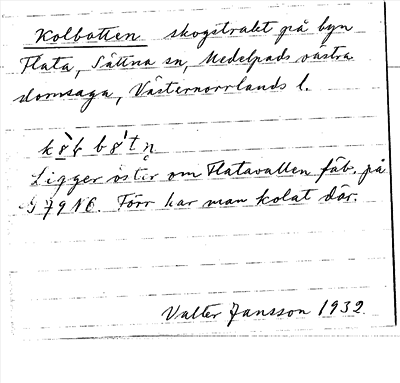 Kolbotten skogstrakt på byn
Flata, Sättna sn, Medelpads västra
domsaga, Västernorrlands l.
Ligger öster om Flatavallen fäb. på
79 N6. Förr har man kolat där.
Valter Jansson 1932.